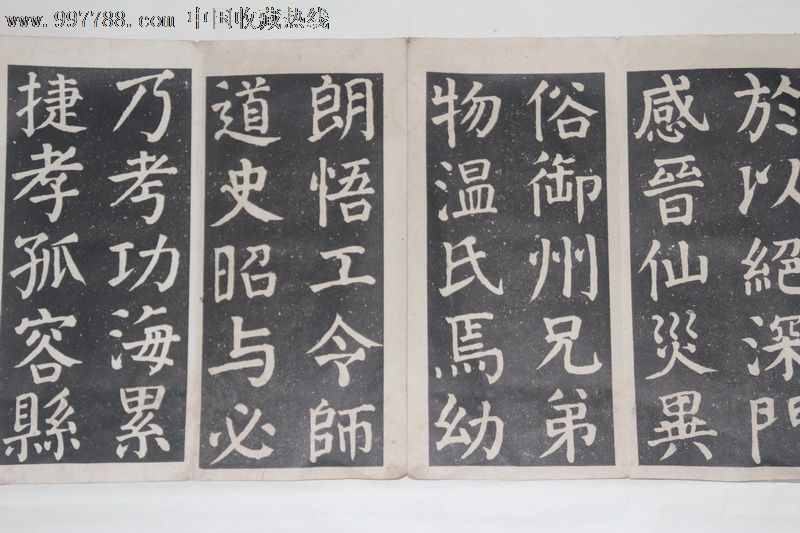 www.997788.com 中国收藏热线
於以絕深門
感晉仙災異
俗御州兄弟
物温氏焉幼
朗悟工令師
道史昭与必
乃考功海累
捷孝孤容縣